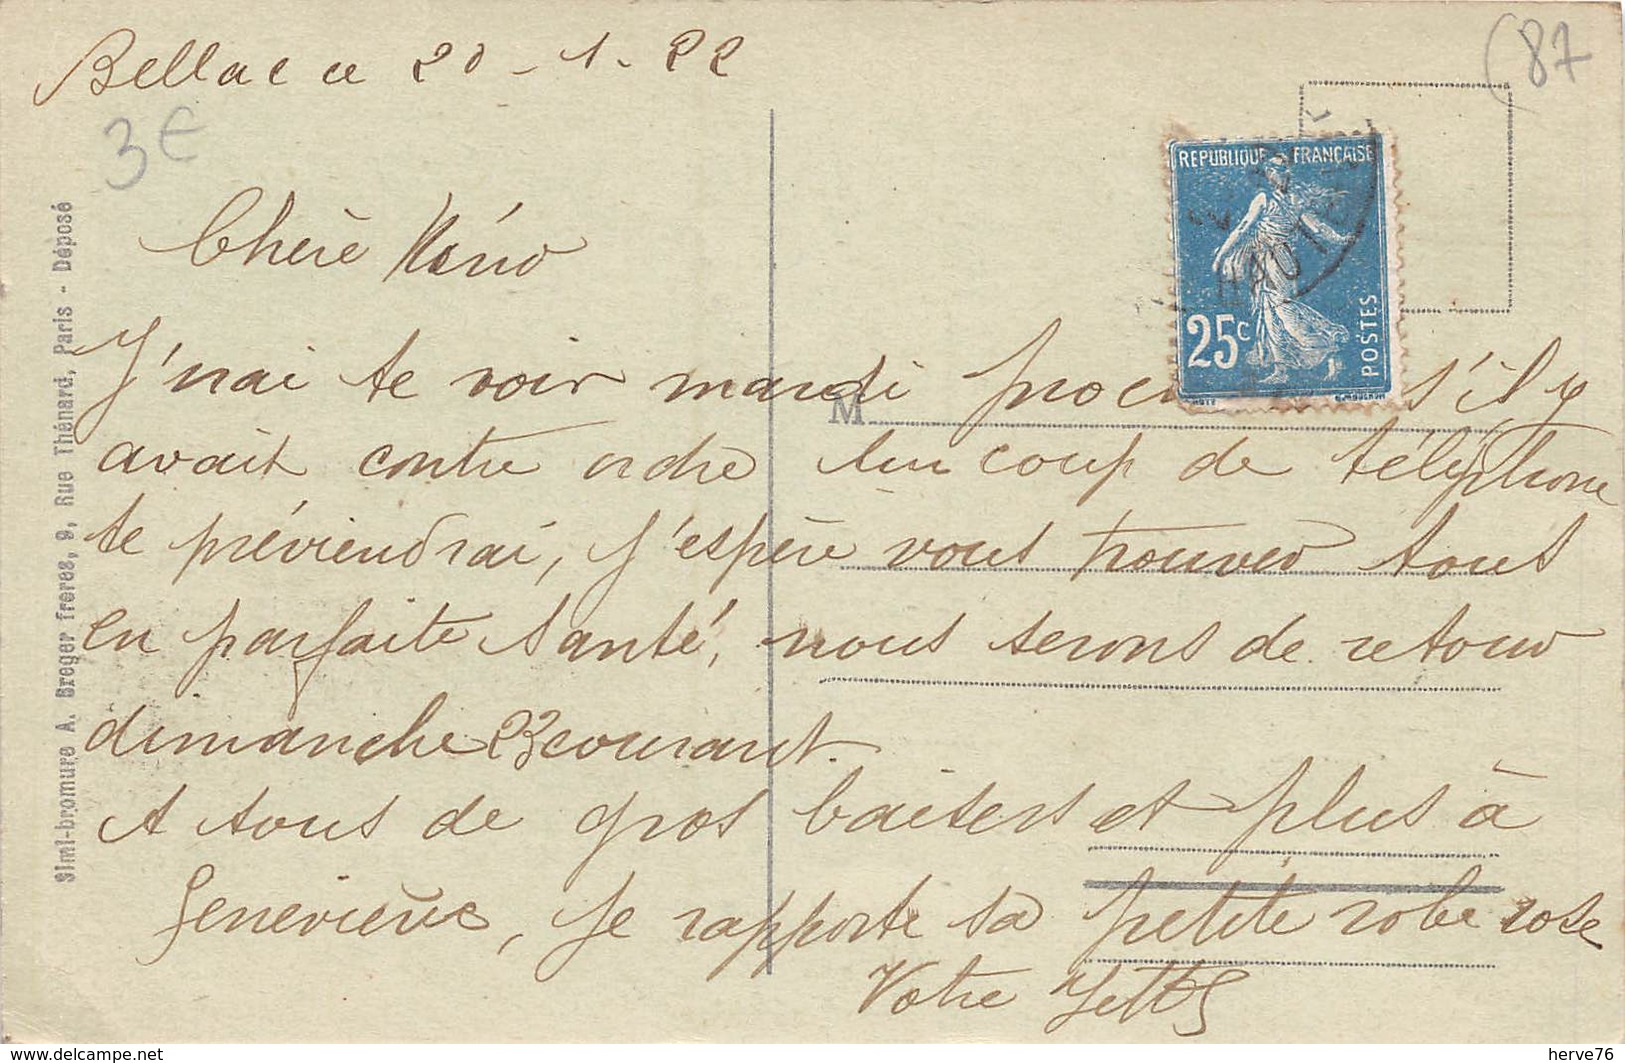 Bellac ce 20-1.22
(87
3€
Chère Néno
J'irai te voir mardi s'il y
avait contre ordre un coup de téléphone
te préviendrai, j'espère vous trouver tous
en parfaite santé, nous serons de retour
dimanche 23 courant.
A tous de gros baisers et plus à
Geneviève, je rapporte sa petite robe rose
Votre
Simi-bromure A. Breger frères, 9, Rue Thénard, Paris - Déposé
M
REPUBLIQUE FRANÇAISE
25c
POSTES
HAUTE
https://www.delcampe.net
herve76